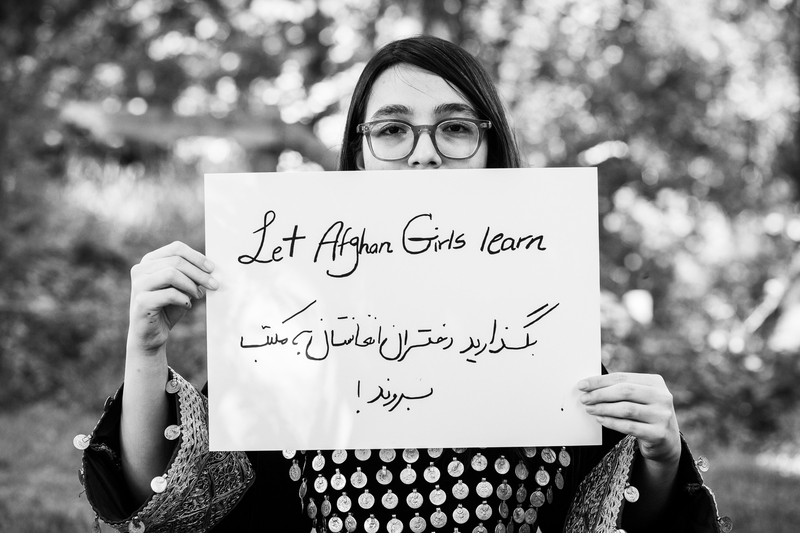 Let Afghan Girls learn
بگذارید دختران افغانستان به مکتب
بروند!